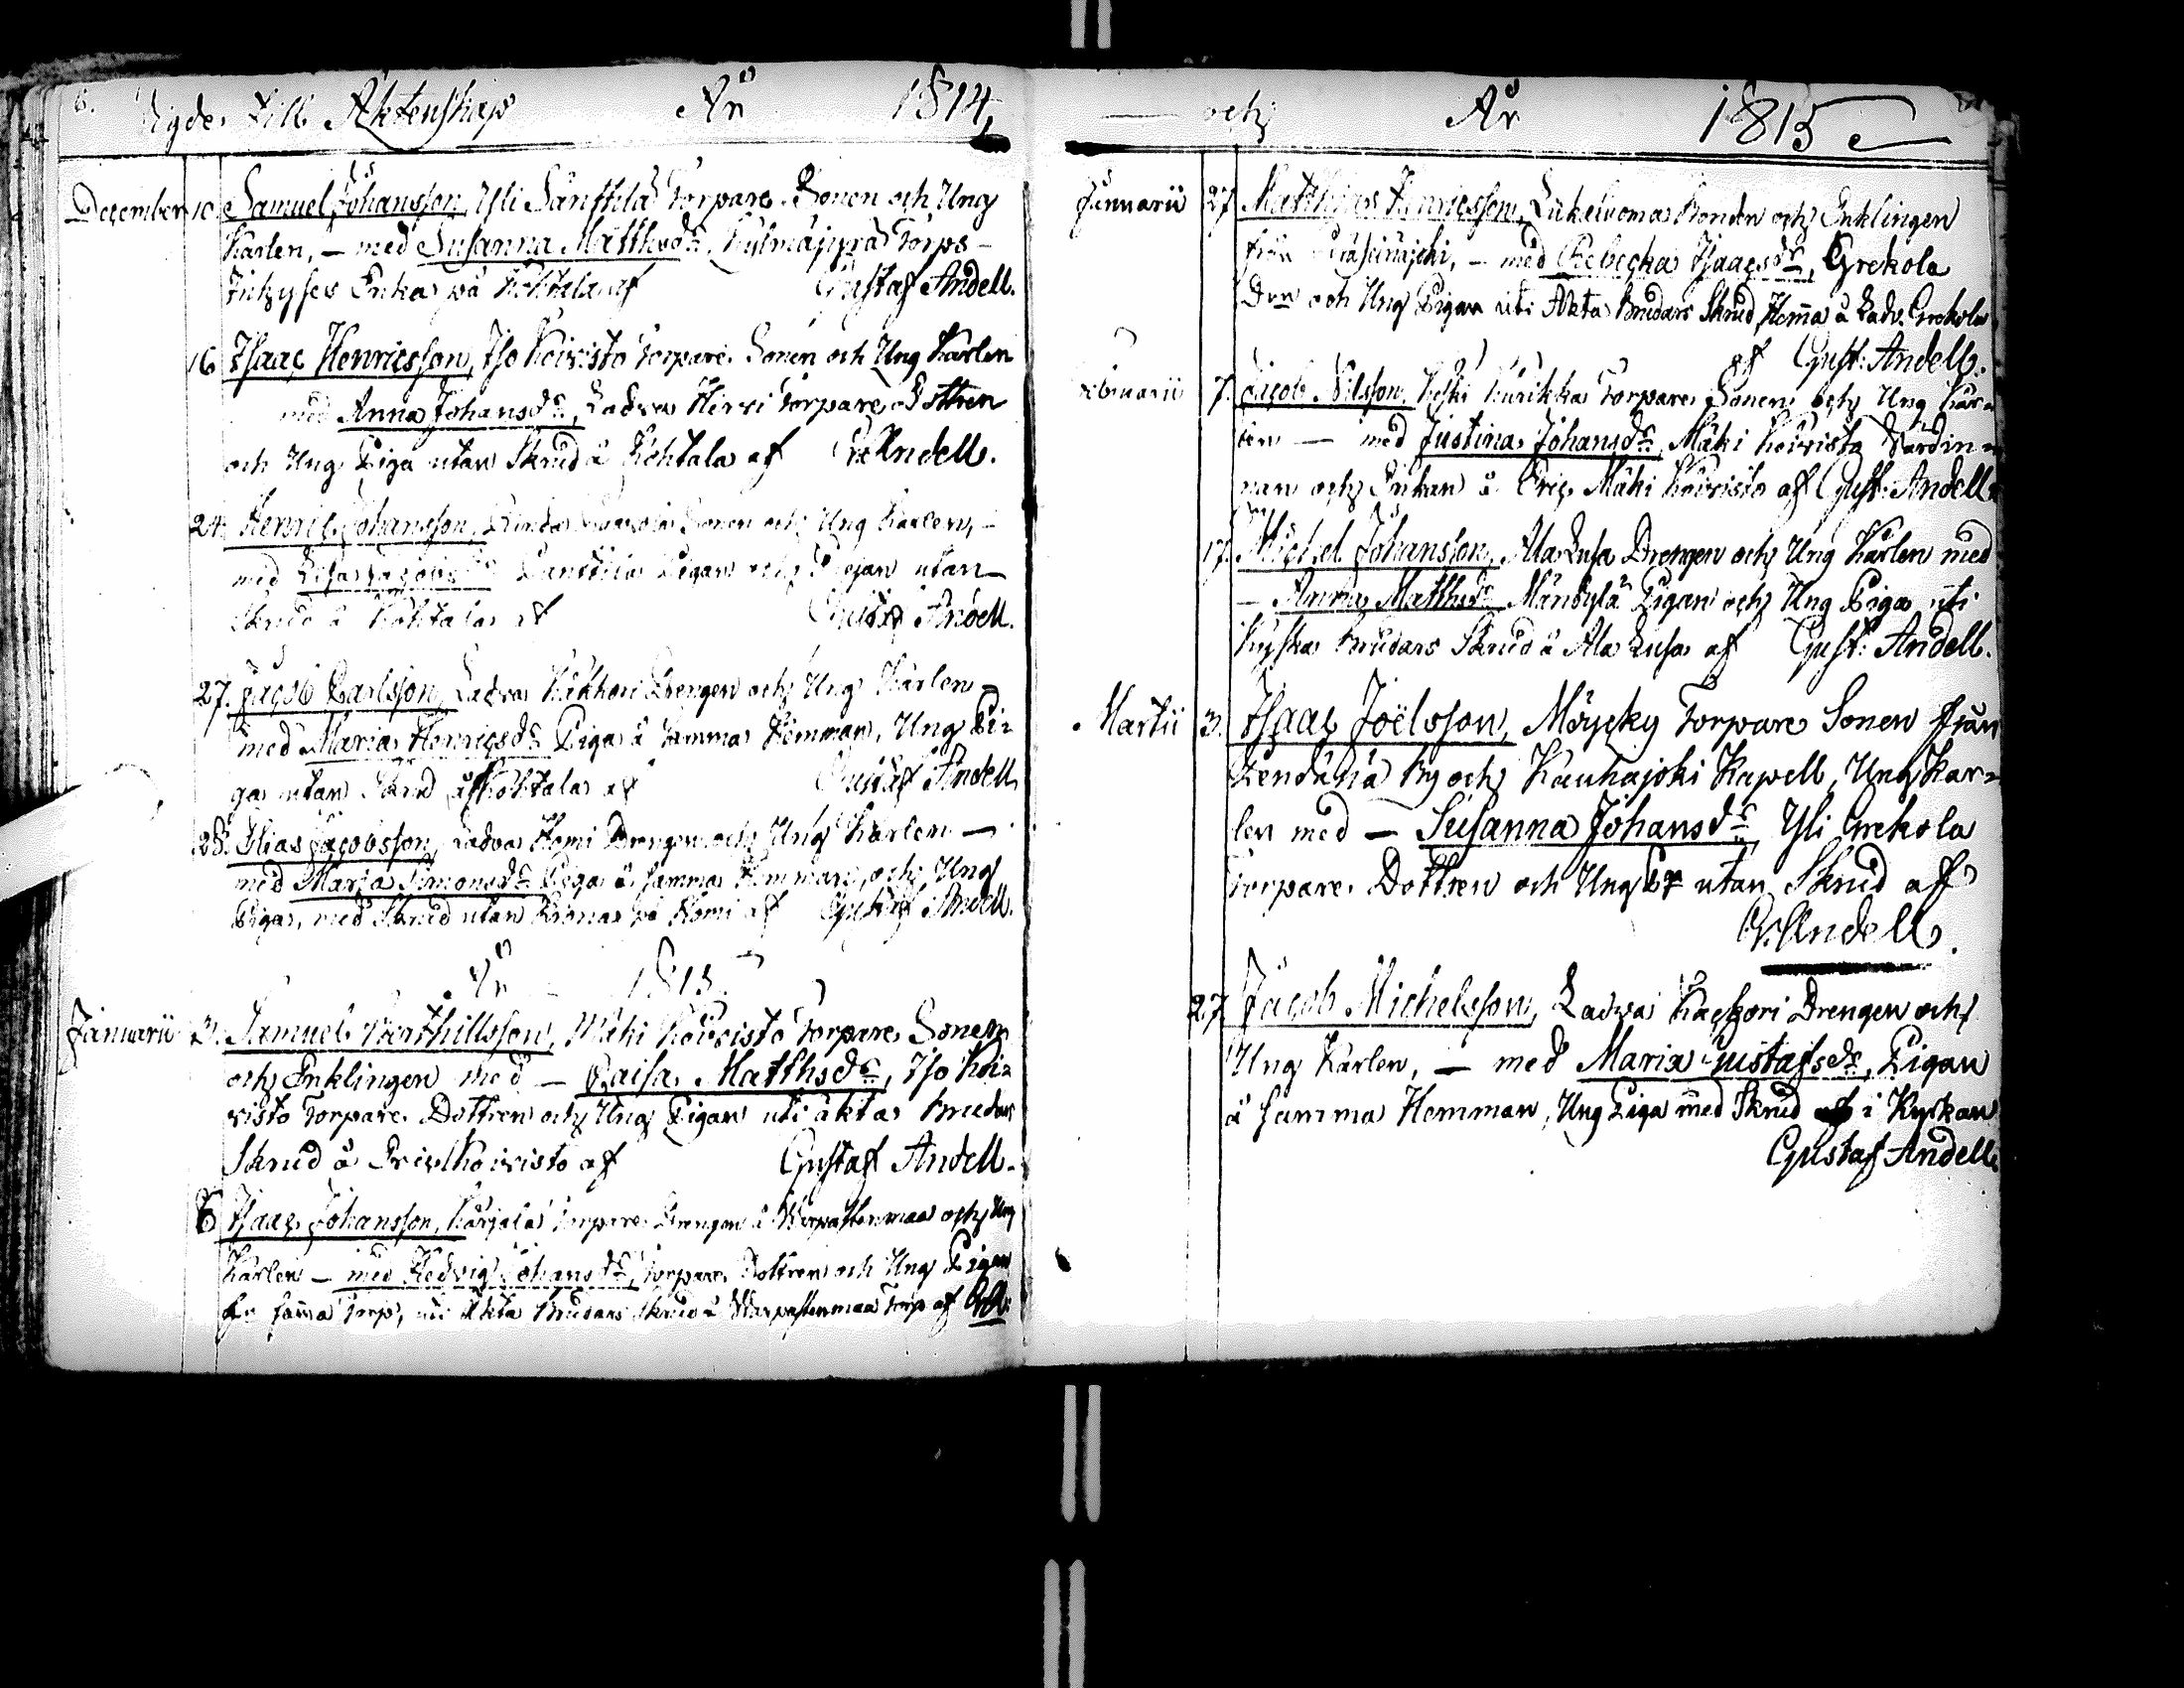 6. Vigde till Äktenskap År 1814,
December 10. Samuel Johansson, Yli Sänttilä Torpare Sonen och Ung
Karlen, — med Susanna Matthsdr, Torps-
Inhyses Enka på Kohtala af Gustaf Andell.
16 Isaac Henricsson, Iso Koivisto Torpare Sonen och Ung Karlen
med Anna Johansdr, Ladva Hirvi Torpare Dottren
och Ung Piga utan Skrud å Kohtala af G. Andell.
24. Henric Johansson, Sonen och Ung Karlen, —
med Lisa Jacobsdr Pigan och Pigan utan
Skrud å Kohtala af Gustaf Andell.
27. Jacob Carlsson, Ladva Käkhori Drengen och Ung Karlen
med Maria Henricsdr Piga å samma Hemman, Ung Pi-
ga utan Skrud å Kohtala af Gustaf Andell
28. Elias Jacobsson, Ladva Homi Drengen och Ung Karlen —
med Maria Simonsdr Piga å samma Hemman, och Ung
Piga, med Skrud utan Krona på Homi af Gustaf Andell.
År 1815
Januarii 3. Samuel Berthillsson, Mäki Koivisto Torpare Sonen
och Enklingen med — Caisa Matthsdr, Iso Koi-
visto Torpare Dottren och Ung Pigan uti äkta Brudars
Skrud å af Gustaf Andell.
6 Isaac Johansson, Karjala Torpare Drengen å Warpastenmaa och Ung
Karlen — med Hedvig Johansdr, Torpare Dottren och Ung Pigan
fr samma Torp, uti Äkta Brudars Skrud å Warpastenmaa Torp af GA.
och År 1815
Januarii 27 Matthias Henricsson, Lukeluoma Bonden och Enklingen
från, — med Rebecka Isaacsdr, Grekola
Drn och Ung Pigan uti Äkta Brudars Skrud, Hemma å Ladv. Grekola
af Gust: Andell.
Februarii 7. Jacob Nilsson, Kurikka Torpare Sonen och Ung Kar-
len — med Justina Johansdr, Mäki Koivisto Värdin-
nan och Enkan å Eric Mäki Koivisto af Gust: Andell.
17. Michel Johansson, Ala Lusa Drengen och Ung Karlen med
— Anna Matthsdr Mändylä Pigan och Ung Piga uti
Kyska Brudars Skrud å Ala Lusa af Gust: Andell.
Martii 3. Isaac Joëlsson, Möycky Torpare Sonen från
By och Kauhajoki Kapell, Ung Kar-
len med — Susanna Johansdr, Yli Grekola
Torpare Dottren och Ung utan Skrud af
G. Andell.
27 Jacob Michelsson, Ladva Drengen och
Ung Karlen, — med Maria Gustafsdr, Pigan
å samma Hemman, Ung Piga med Skrud i Kyrkan
Gustaf Andell.